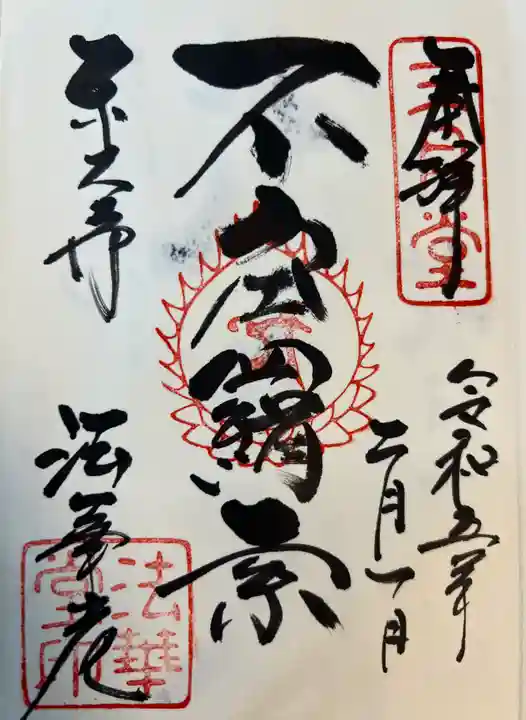 奉拝
三月堂
令和五年
二月一日
不空羂索
東大寺
法華堂
法華
堂印